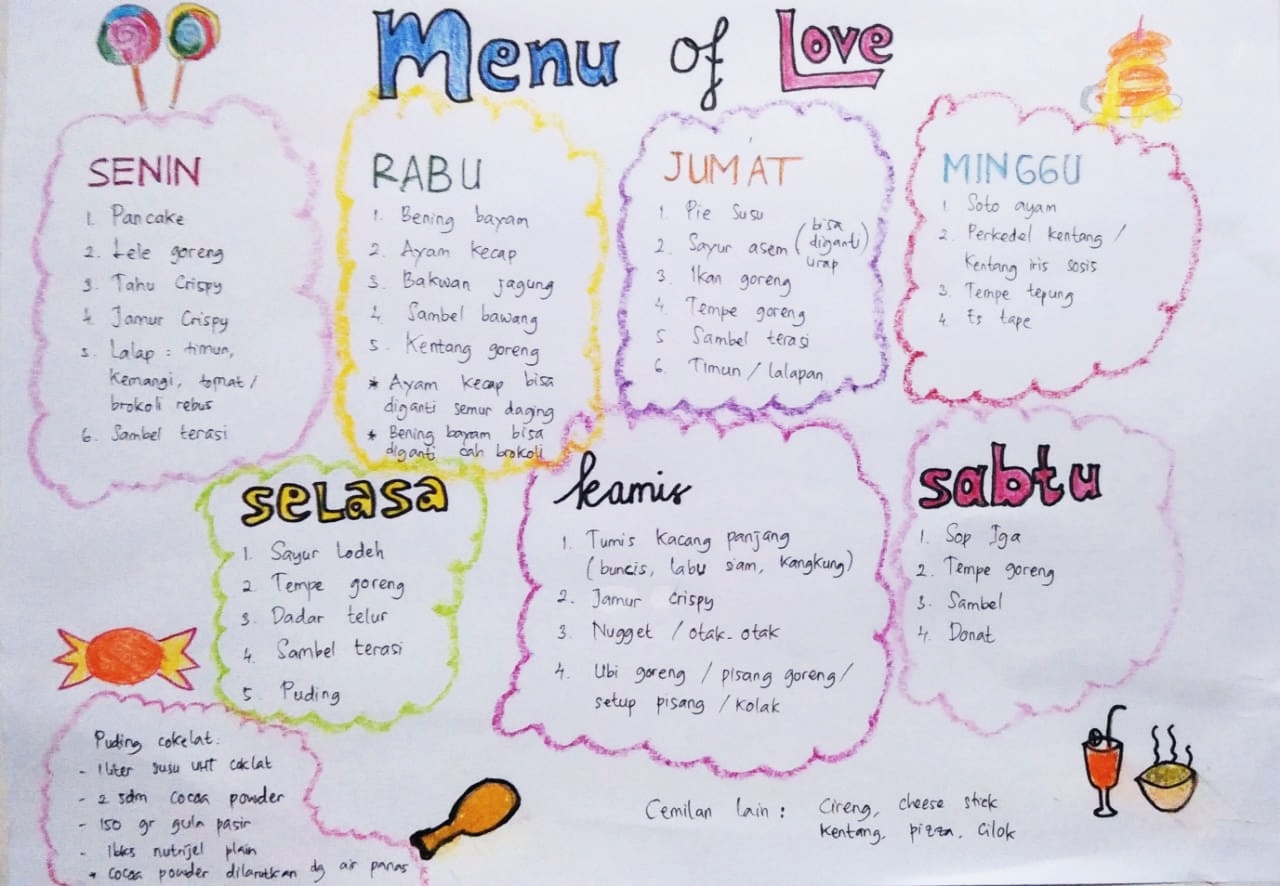 Menu of Love
SENIN
1. Pancake
2. Lele goreng
3. Tahu Crispy
4. Jamur Crispy
5. Lalap : timun,
kemangi, tomat /
brokoli rebus
6. Sambel terasi
RABU
1. Bening bayam
2. Ayam kecap
3. Bakwan jagung
4. Sambel bawang
5. Kentang goreng
* Ayam kecap bisa
diganti semur daging
* Bening bayam bisa
diganti cah brokoli
JUM'AT
1. Pie Susu
2. Sayur asem (bisa
diganti)
urap
3. Ikan goreng
4. Tempe goreng
5. Sambel terasi
6. Timun / lalapan
MINGGU
1. Soto ayam
2. Perkedel kentang /
kentang iris sosis
3. Tempe tepung
4. Es tape
SELASA
1. Sayur Lodeh
2. Tempe goreng
3. Dadar telur
4. Sambel terasi
5. Puding
kamis
1. Tumis kacang panjang
(buncis, labu siam, kangkung)
2. Jamur crispy
3. Nugget / otak-otak
4. Ubi goreng / pisang goreng /
setup pisang / kolak
sabtu
1. Sop Iga
2. Tempe goreng
3. Sambel
4. Donat
Puding cokelat :
- 1 liter susu UHT coklat
- 2 sdm cocoa powder
- 150 gr gula pasir
- 1bks nutrijel plain
* cocoa powder dilarutkan dg air panas
Cemilan lain : Cireng, cheese stick
kentang, pizza, cilok